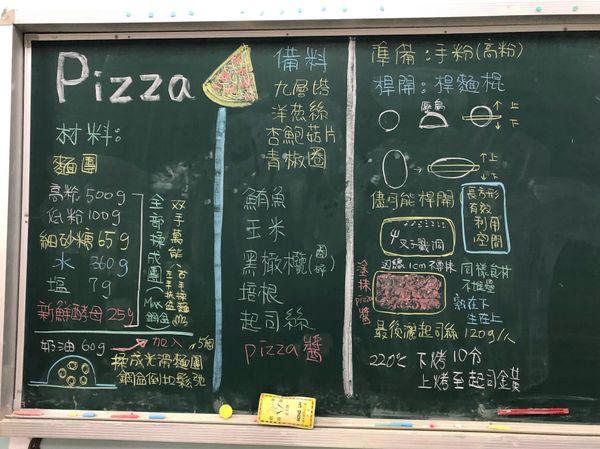 Pizza
材料:
麵團
高粉 500g
低粉 100g
細砂糖 65g
水 360g
塩 7g
新鮮酵母 25g
全部揉成團
雙手萬能
奶油 60g → 加入
揉成光滑麵團
鋼盆倒扣鬆弛
備料
九層塔
洋蔥絲
杏鮑菇片
青椒圈
鮪魚
玉米
黑橄欖
培根
起司絲
pizza醬
準備:手粉(高粉)
桿開:桿麵棍
上
下
上
下
儘可能桿開
長方形
有效
利用
空間
叉子戳洞
塗抹
pizza
醬
邊緣1cm不要抹
同樣食材
不堆疊
熟在下
生在上
最後灑起司絲 120g/人
220℃ 下烤 10分
上烤至起司金黃